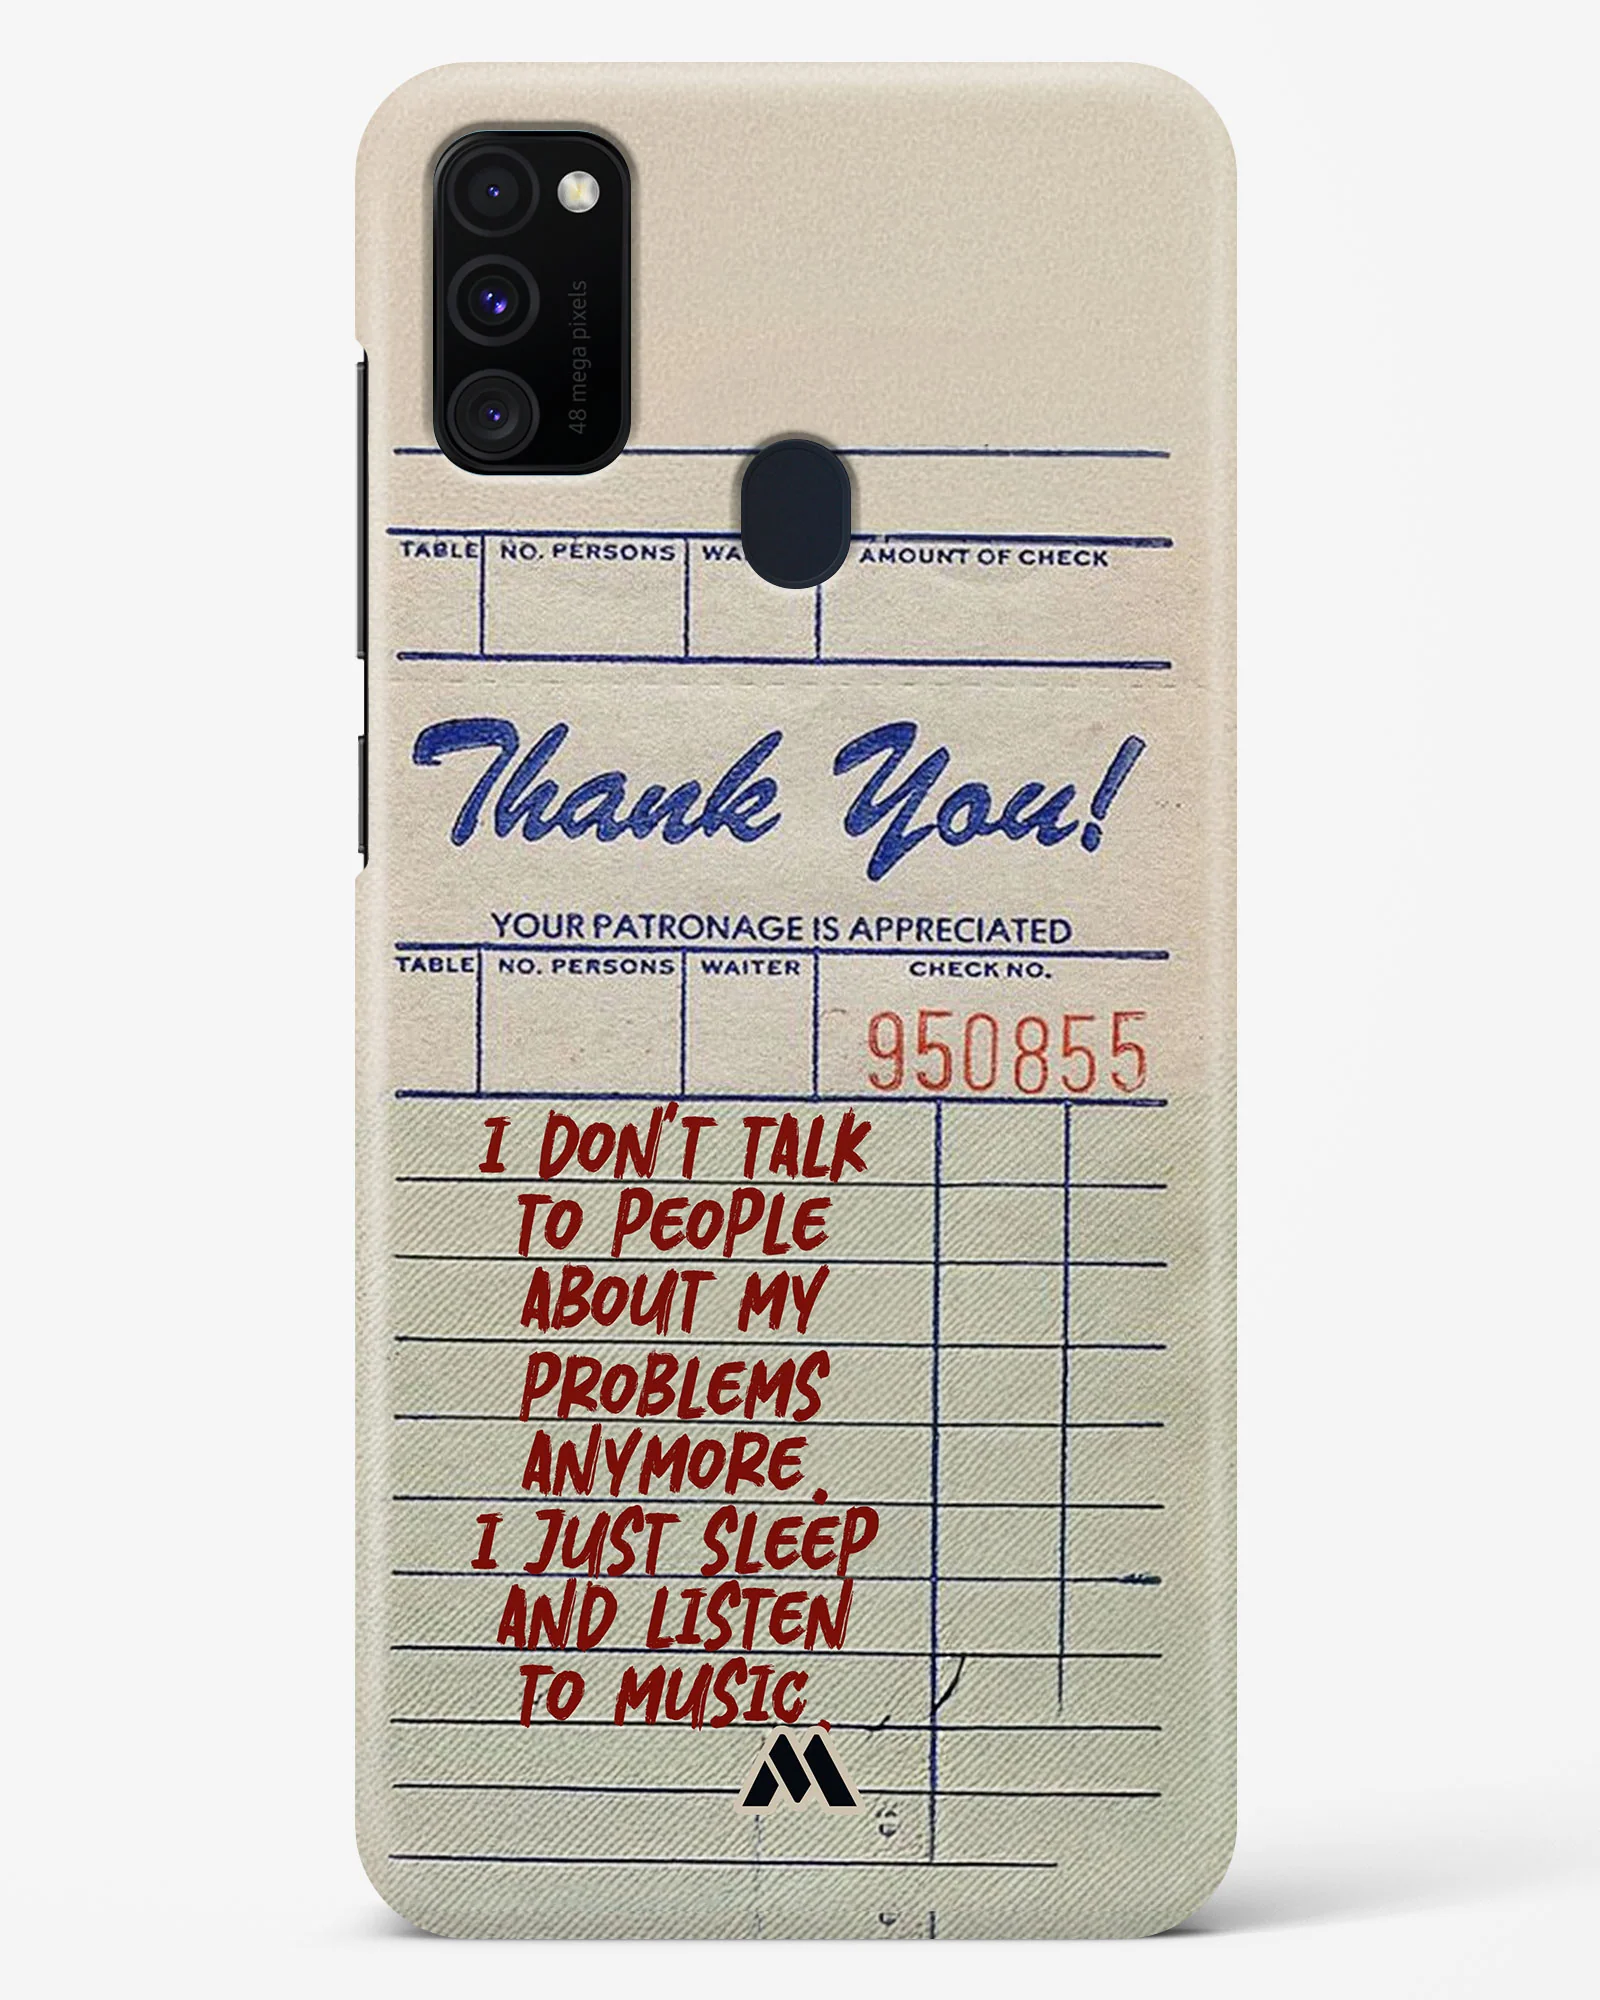 48 mega pixels
TABLE NO. PERSONS AMOUNT OF CHECK
Thank You!
YOUR PATRONAGE IS APPRECIATED
TABLE NO. PERSONS WAITER CHECK NO.
950855
I DON'T TALK
TO PEOPLE
ABOUT MY
PROBLEMS
ANYMORE.
I JUST SLEEP
AND LISTEN
TO MUSIC.